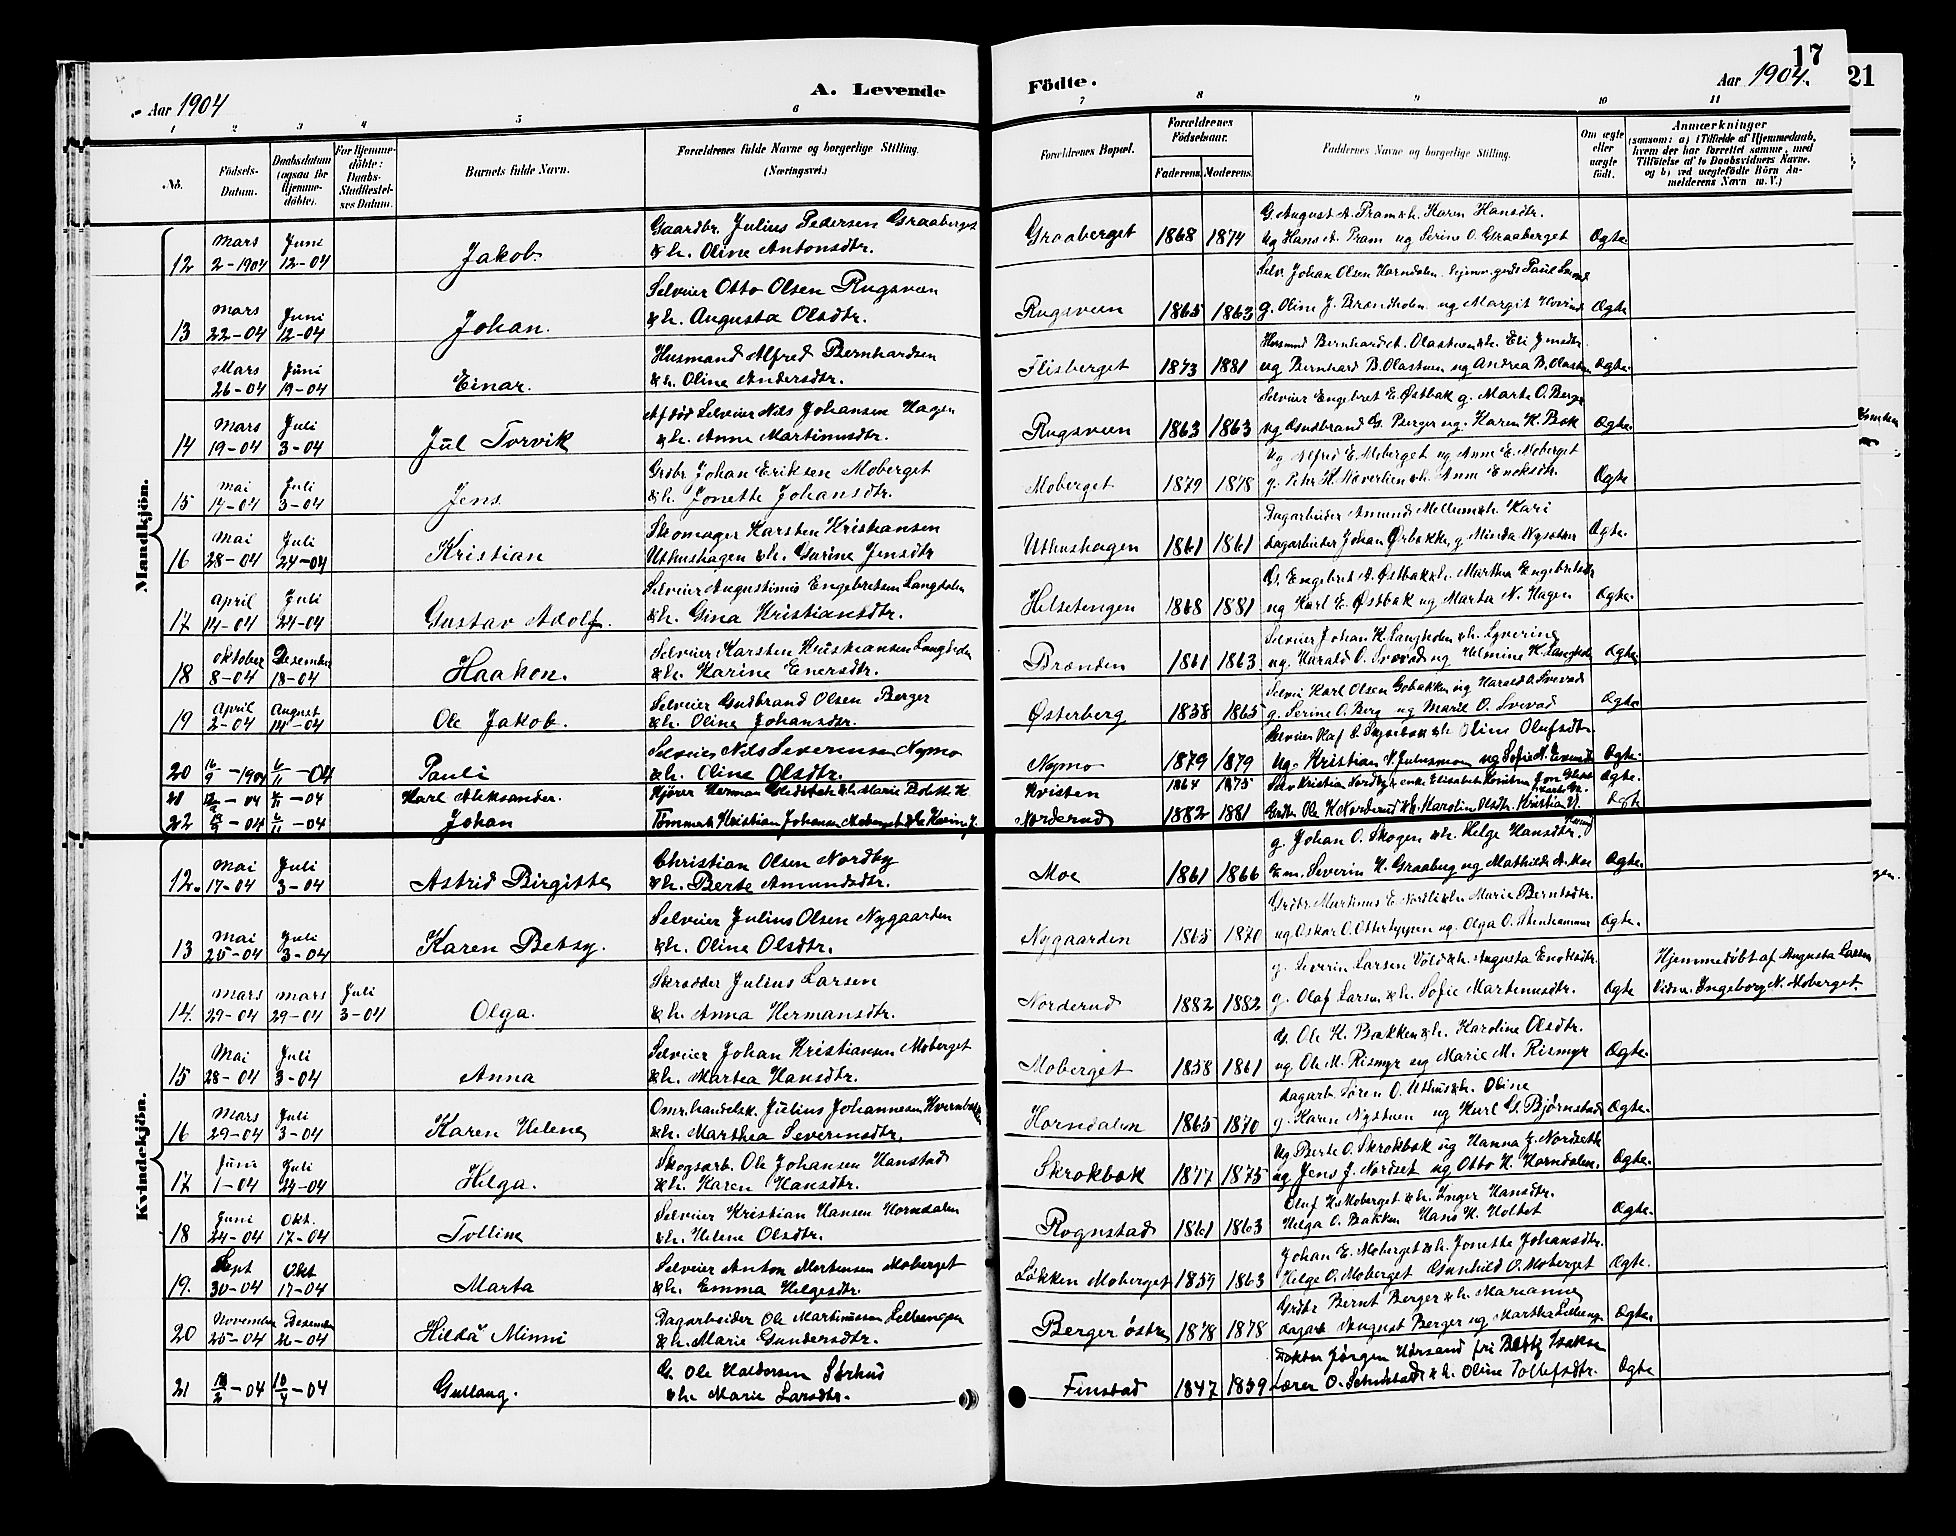 17
21
Aar 1904
A. Levende Födte.
Aar 1904.
1 2 3 4 5 6 7 8 9 10 11
No.
Födsels-Datum.
Daabsdatum (ogsaa for Hjemmedöbte).
For Hjemmedöbte: Daabs-Stadfæstelses Datum.
Barnets fulde Navn.
Forældrenes fulde Navne og borgerlige Stilling. (Næringsvei.)
Forældrenes Bopæl.
Forældrenes Födselsaar.
Faderens. Moderens.
Faddernes Navne og borgerlige Stilling.
Om ægte eller uægte födt.
Anmærkninger
(saasom: a) i Tilfælde af Hjemmedaab, hvem der har forrettet samme, med Tilföielse af to Daabsvidners Navne. og b) ved uægtefödte Börn Anmelderens Navn m. V.)
Mandkjön.
12 Mars 2-1904 Juni 12-04 Jakob. Gaardbr. Julius Pedersen Graaberget & h. Oline Antonsdtr. Graaberget 1868 1874 G. August A. Pram & h. Karen Hansdtr. ug Hans A. Pram ug Serine O. Graaberget Ægte
13 Mars 22-04 Juni 12-04 Johan. Selveier Otto Olsen Rugsveen & h. Augusta Olsdtr. Rugsveen 1865 1863 Selv. Johan Olsen Horndalen g. Oline J. Brændholen ug Margit Ægte
Mars 26-04 Juni 19-04 Einar. Husmand Alfred Bernhardsen & h. Oline Andersdtr. Flisberget 1873 1881 Husmand Bernhard A. Olastuen & h. Eli Jensdtr. ug Bernhard B. Olastuen ug Andrea B. Olastuen Ægte
14 Mars 19-04 Juli 3-04 Jul Torvik Afdöd Selveier Nils Johansen Hagen & h. Anne Martinusdtr. Rugsveen 1863 1863 Selveier Engebret E. Østbak g. Marte O. Berger ug Gudbrand G. Berger ug. Karen K. Bak Ægte
15 Mai 14-04 Juli 3-04 Jens Grdbr. Johan Eriksen Moberget & h. Jonette Johansdtr. Moberget 1879 1878 ug Alfred E. Moberget ug Anne E. Moberget g. Petr. H. & h. Anne Enoksdtr. Ægte
16 Mai 28-04 Juli 24-04 Kristian Skomager Karsten Kristiansen Uthushagen & h. Gurine Jensdtr Uthushagen 1861 1861 Dagarbeider Amund Mellum & h. Kari dagarbeider Johan Ørbakken g. Minda Ægte
17 April 14-04 Juli 24-04 Gustav Adolf. Selveier Augustinus Engebretsen Langholen & h. Gina Kristiansdtr. Helsetengen 1868 1881 G. Engebret A. Østbak & h. Marthea Engebretsdtr ug Karl E. Østbak ug Marta N. Hagen Ægte
18 Oktober 8-04 Desember 18-04 Haakon. Selveier Karsten Kristiansen & h. Karine Enersdtr. Brænden 1861 1863 Selveier Johan K. & h. Syverine ug. Harald O. Svevad ug Helmine K. Ægte
19 April 2-04 August 14-04 Ole Jakob. Selveier Gudbrand Olsen Berger & h. Oline Johansdtr. Østerberg 1838 1865 Selvei Karl Olsen Gobakken ug Harald O. Svevad g. Serine O. Berg ug Marie O. Svevad Ægte
20 16/9-1904 6/11-04 Pauli Selveier Nils Severinsen Nymo & h. Oline Olsdtr. Nymo 1879 1879 Selveier Olaf & h. Oline Olufsdtr. ug. Kristian N. Julusmoen ug Sofie N. Ægte
21 12/9-04 6/11-04 Karl Aleksander. Kjører Herman & h. Marie Kvisten 1864 1875 Selv Kristian Nordby & enke Elisabeth Ægte.
22 -04 6/11-04 Johan Tömmerh Kristian Johansen Moberget & h. Karin J. Norderud 1882 1881 Grdbr. Ole K Norderud & h. Karolin Olsdtr. Kristian Ægte
Kvindekjön.
12. Mai 17-04 Juli 3-04 Astrid Birgitte Christian Olsen Nordby & h. Berte Amundsdtr. Moe 1861 1866 g. Johan O. Skogen & h. Helge Hansdtr. Severin H. Graaberg ug Mathilde A. Moe Ægte
13 Mai 25-04 Juli 3-04 Karen Betsy. Selveier Julius Olsen Nygaarden & h. Oline Olsdtr. Nygaarden 1865 1870 Grdbr. Martinus E. Nordli & h. Marie Berntsdtr. ug Oskar O. ug. Olga O. Stenhammer Ægte
14. Mars 29-04 Mars 29-04 Juli 3-04 Olga. Skrædder Julius Larsen & h. Anna Hermansdtr. Norderud 1882 1882 g. Severin Larsen Vold & h. Augusta Enoksdtr. g. Olaf Larsen & h. Sofie Martinusdtr. Ægte Hjemmedöbt af Augusta Larsen Vidne. Ingeborg N. Moberget.
15 Mai 28-04 Juli 3-04 Anna Selveier Johan Kristiansen Moberget & h. Martea Hansdtr. Moberget 1858 1861 G. Ole H. Bakken & h. Karoline Olsdtr. ug Ole M. Rismyr ug Marie M. Rismyr Ægte
16 Mars 29-04 Juli 3-04 Karen Helene Omr. handelsk. Julius Johannesen & h. Marthea Severinsdtr. Horndalen 1865 1870 dagarb. Sören O. Uthus & h. Oline g. Karen Nystuen ug Karl G. Bjørnstad Ægte
17 Juni 1-04 Juli 24-04 Helga. Skogsarb. Ole Johansen Hanstad & h. Karen Hansdtr. Skrokbæk 1877 1875 ug Berte O. Skrokbæk ug Hanna J. Nordsetk ug Jens J. Nordset ug Otto H. Horndalen. Ægte
18 Juni 24-04 Okt. 17-04 Tolline Selveier Kristian Hansen Horndalen & h. Helene Olsdtr. Rognstad 1861 1863 Oluf H. Moberget & h. Inger Hansdtr. Helga O. Bakken Hans H. Holtet Ægte
19. Sept 30-04 Okt 17-04 Marta Selveier Anton Mortensen Moberget & h. Emma Helgesdtr. Løkken Moberget 1859 1863 Johan E. Moberget & h. Jonette Johansdtr. Helge O. Moberget Gunhild O. Moberget Ægte.
20 November 25-04 Desember 26-04 Hilda Minni Dagarbeider Ole Martinussen & h. Marie Gundersdtr. Berger östre 1878 1878 Grdbr Bernt Berger & h. Marianne dagarb August Berger ug Martha Ægte.
21 10/2-04 10/4-04 Gullaug. G. Ole Haldorsen Sørhus & h. Marie Larsdtr. Finstad 1847 1859 Doktor Jörgen Hørsand fri Betty Isaksen Lærer O. & h. Oline Tollefsdtr. Ægte